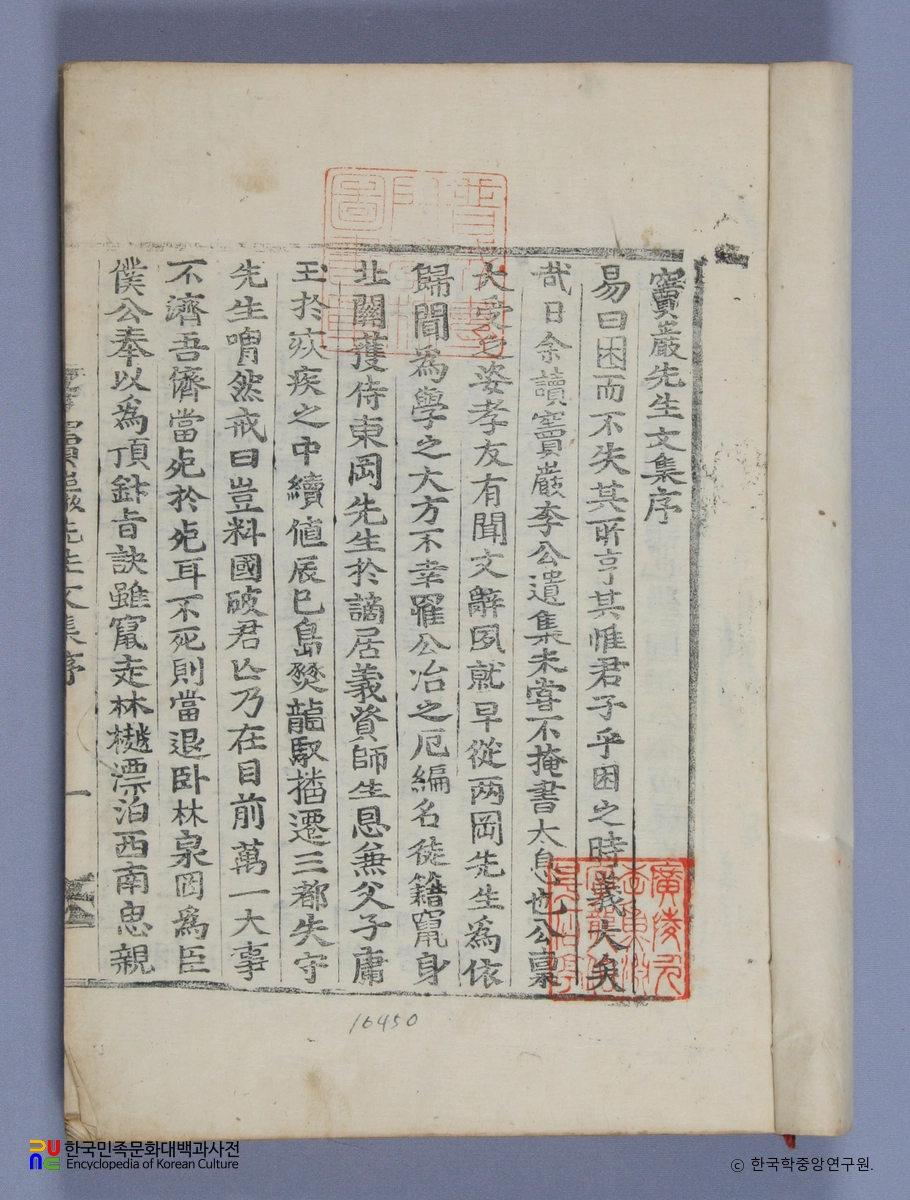 竇巖先生文集序
易曰困而不失其所亨其惟君子乎困之時義大矣
哉日余讀竇巖李公遺集未嘗不掩書太息也公稟
大受之姿孝友有聞文辭夙就早從兩岡先生爲依
歸聞爲學之大方不幸罹公冶之厄編名徒籍竄身
北關護侍東岡先生於謫居義資師生恩無父子庸
玉於疢疾之中續値辰巳島燹龍馭播遷三都失守
先生喟然戒曰豈料國破君亡乃在目前萬一大事
不濟吾儕當死於死耳不死則當退卧林泉罔爲臣
僕公奉以爲頂針旨訣雖竄走林樾漂泊西南忠親
竇巖先生文集序 一
16450
한국민족문화대백과사전
Encyclopedia of Korean Culture
ⓒ 한국학중앙연구원.